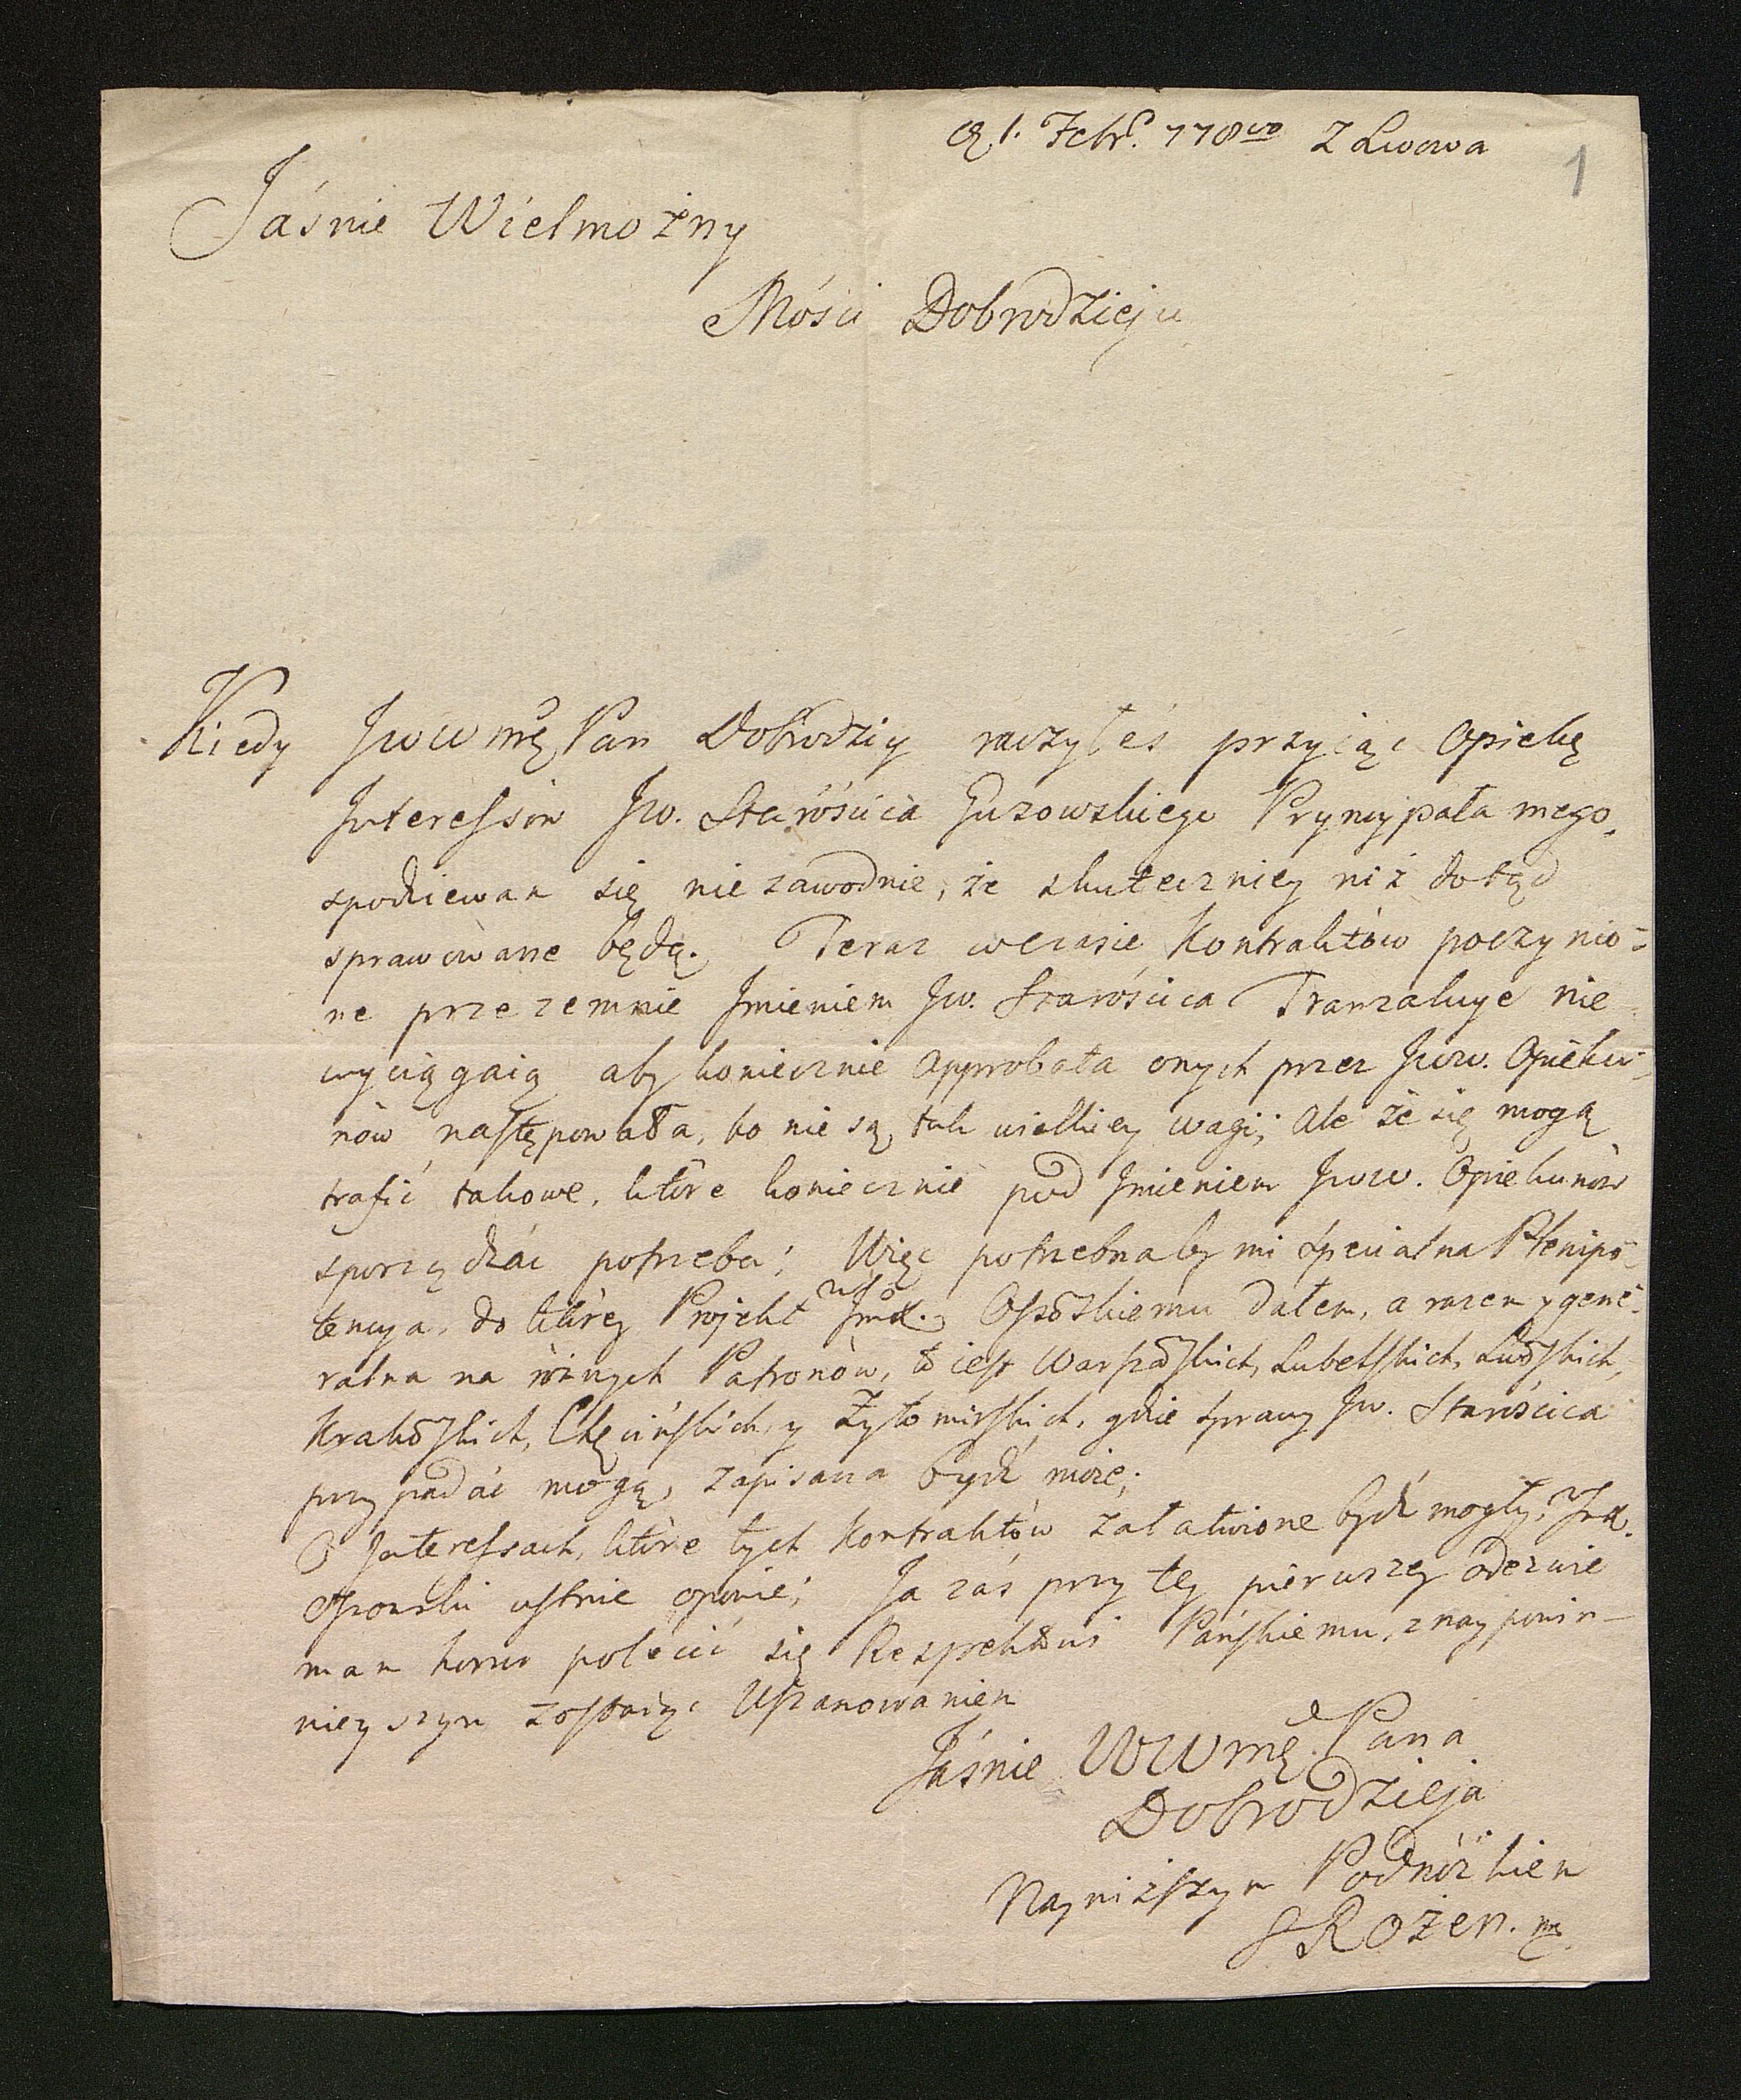 1. Febr. 1780 Z Lwowa
1
Jaśnie Wielmożny
Mości Dobrodzieju
Kiedy JWWMć Pan Dobrodziey raczyłeś przyiąć Opiekę
Interessów Jw. Starościca Guzowskiego Pryncypała mego,
spodziewam się niezawodnie, że skuteczniey niż dotąd
sprawowane będą. Teraz wczasie Kontraktów poczynio-
ne przezemnie Imieniem Jw. Starościca Tranzakcye nie-
wyciągaią aby koniecznie Approbata onych przez Jww. Opieku-
nów następowała, bo nie są tak wielkiey wagi; Ale że się mogą
trafić takowe, które koniecznie pod Imieniem Jww. Opiekunów
sporządzać potrzeba; Więc potrzebnaby mi specialna Plenipo-
tencya, do którey Projekt Imć. Ossoskiemu dałem, a razem y gene-
ralna na różnych Patronów, to iest Warszaskich, Lubelskich, Lwoskich,
Krakoskich, Chęcińskich, y Żytomirskich, gdzie sprawy Jw. Starościca
przypadać mogą, zapisana bydź może;
O Interessach, które tych Kontraktów załatwione bydź mogły, Imć.
Ossowski ustnie opowie; Ja zaś przy tey pierwszey odezwie
mam honor polecić się Respektowi Pańskiemu, z naypowin-
nieyszym zostaiąc Uszanowaniem
Jaśnie WWMć Pana
Dobrodzieja
Nayniższym Podnóżkiem
SRożen. mp